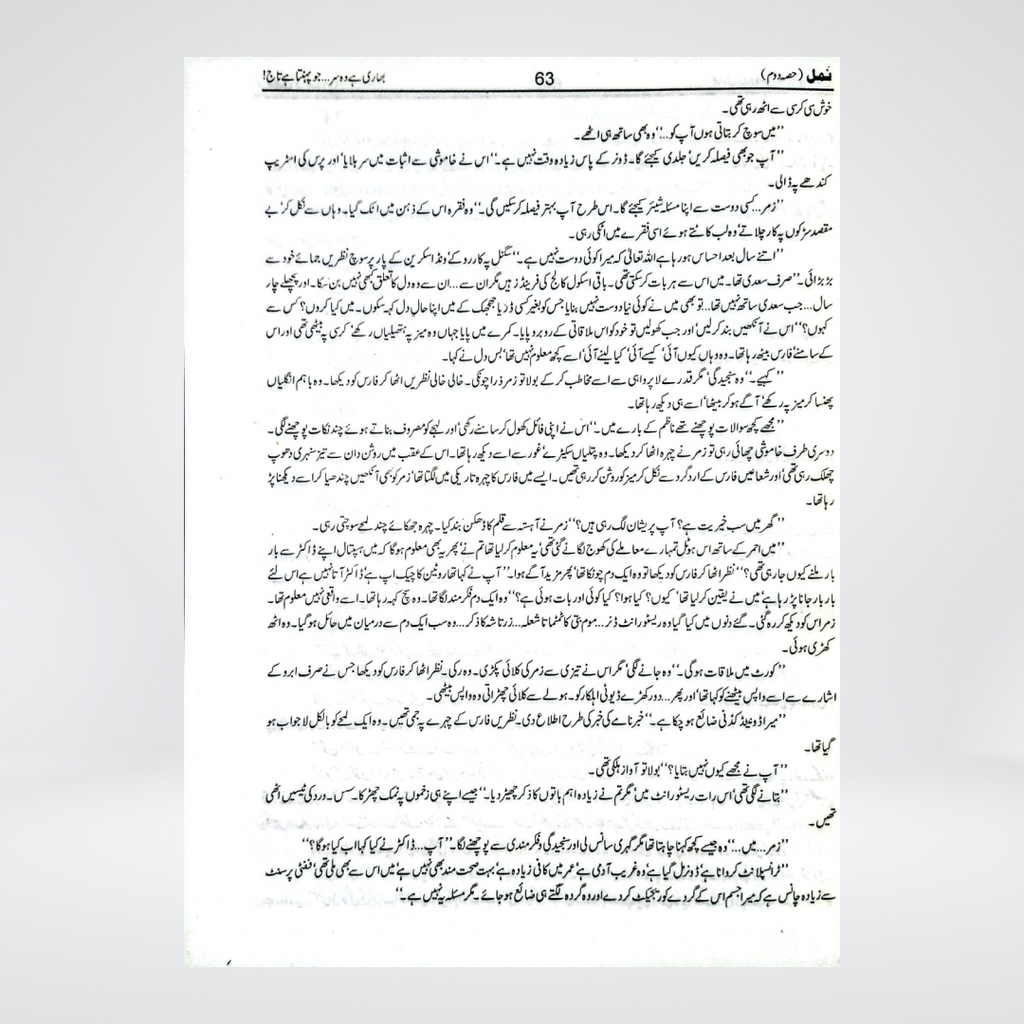 نمل (حصہ دوم) 63 بھاری ہے وہ سر...جو پہنتا ہے تاج!
خوش سی کرسی سے اٹھ رہی تھی۔
’’میں سوچ کر بتاتی ہوں آپ کو...‘‘ وہ بھی ساتھ ہی اٹھے۔
’’آپ جو بھی فیصلہ کریں‘ جلدی کیجئے گا۔ ڈونر کے پاس زیادہ وقت نہیں ہے۔‘‘ اس نے خاموشی سے اثبات میں سر ہلایا‘ اور پرس کی اسٹریپ
کندھے پہ ڈالی۔
’’زمر...کسی دوست سے اپنا مسئلہ شیئر کیجئے گا۔ اس طرح آپ بہتر فیصلہ کر سکیں گی۔‘‘ وہ فقرہ اس کے ذہن میں اٹک گیا۔ وہاں سے نکل کر‘ بے
مقصد سڑکوں پہ کار چلاتے‘ وہ لب کاٹتے ہوئے اسی فقرے میں اٹکی رہی۔
’’اتنے سال بعد احساس ہو رہا ہے اللہ تعالیٰ کہ میرا کوئی دوست نہیں ہے۔‘‘ سگنل پہ کار روکے‘ ونڈ اسکرین کے پار پر سوچ نظریں جمائے خود سے
بڑبڑائی۔ ’’صرف سعدی تھا۔ میں اس سے ہر بات کر سکتی تھی۔ باقی اسکول کالج کی فرینڈز ہیں مگر ان سے...ان سے وہ دل کا تعلق کبھی نہیں بن سکا۔ اور پچھلے چار
سال...جب سعدی ساتھ نہیں تھا...تو بھی میں نے کوئی نیا دوست نہیں بنایا جس کو بغیر کسی ڈر یا جھجک کے میں اپنا حالِ دل کہہ سکوں۔ میں کیا کروں؟ کس سے
کہوں؟‘‘ اس نے آنکھیں بند کر لیں‘ اور جب کھولیں تو خود کو اس ملاقاتی کے روبرو پایا۔ کمرے میں پایا جہاں وہ میز پہ ہتھیلیاں رکھے‘ کرسی پہ بیٹھی تھی اور اس
کے سامنے‘ فارس بیٹھ رہا تھا۔ وہ وہاں کیوں آئی‘ کیسے آئی‘ کیا لینے آئی‘ اسے کچھ معلوم نہیں تھا‘ بس دل نے کہا۔
’’کہیے۔‘‘ وہ سنجیدگی‘ مگر قدرے لاپرواہی سے اسے مخاطب کر کے بولا تو زمر ذرا چونکی۔ خالی خالی نظریں اٹھا کر فارس کو دیکھا۔ وہ باہم انگلیاں
پھنسا کر میز پہ رکھے‘ آگے ہو کر بیٹھا‘ اسے ہی دیکھ رہا تھا۔
’’مجھے کچھ سوالات پوچھنے تھے ناظم کے بارے میں۔‘‘ اس نے اپنی فائل کھول کر سامنے رکھی‘ اور لہجے کو مصروف بناتے ہوئے چند نکات پوچھنے لگی۔
دوسری طرف خاموشی چھائی رہی تو زمر نے چہرہ اٹھا کر دیکھا۔ وہ پتلیاں سکیڑے‘ غور سے اسے دیکھ رہا تھا۔ اس کے عقب میں روشن دان سے تیز سنہری دھوپ
چھلک رہی تھی‘ اور شعاعیں فارس کے اردگرد سے نکل کر میز کو روشن کر رہی تھیں۔ ایسے میں فارس کا چہرہ تاریکی میں لگتا تھا‘ زمر کو بھی آنکھیں چندھیا کر اسے دیکھنا پڑ
رہا تھا۔
’’گھر میں سب خیریت ہے؟ آپ پریشان لگ رہی ہیں؟‘‘ زمر نے آہستہ سے قلم کا ڈھکن بند کیا۔ چہرہ جھکائے چند لمحے سوچتی رہی۔
’’میں احمر کے ساتھ اس ہوٹل تمہارے معاملے کی کھوج لگانے گئی تھی‘ یہ معلوم کر لیا تھا تم نے‘ پھر یہ بھی معلوم ہو گا کہ میں ہسپتال اپنے ڈاکٹر سے بار
بار ملنے کیوں جا رہی تھی؟‘‘ نظر اٹھا کر فارس کو دیکھا تو وہ ایک دم چونکا تھا‘ پھر مزید آگے ہوا۔ ’’آپ نے کہا تھا روٹین کا چیک اپ ہے‘ ڈاکٹر آتا نہیں ہے اس لئے
بار بار جانا پڑ رہا ہے‘ میں نے یقین کر لیا تھا‘ کیوں؟ کیا ہوا؟ کیا کوئی اور بات ہوئی ہے؟‘‘ وہ ایک دم فکر مند لگا تھا۔ وہ سچ کہہ رہا تھا۔ اسے واقعی نہیں معلوم تھا۔
زمر اس کو دیکھ کر رہ گئی۔ گئے دنوں میں کیا گیا وہ ریسٹورانٹ ڈنر...موم بتی کا ٹمٹماتا شعلہ...زرتاشہ کا ذکر...وہ سب ایک دم سے درمیان میں حائل ہو گیا۔ وہ اٹھ
کھڑی ہوئی۔
’’کورٹ میں ملاقات ہو گی۔‘‘ وہ جانے لگی‘ مگر اس نے تیزی سے زمر کی کلائی پکڑی۔ وہ رکی۔ نظر اٹھا کر فارس کو دیکھا جس نے صرف ابرو کے
اشارے سے اسے واپس بیٹھنے کو کہا تھا‘ اور پھر...دور کھڑے ڈیوٹی اہلکار کو۔ ہولے سے کلائی چھڑاتی وہ واپس بیٹھی۔
’’میرا ڈونیٹڈ کڈنی ضائع ہو چکا ہے۔‘‘ خبرنامے کی خبر کی طرح اطلاع دی۔ نظریں فارس کے چہرے پہ جمی تھیں۔ وہ ایک لمحے کو بالکل لاجواب ہو
گیا تھا۔
’’آپ نے مجھے کیوں نہیں بتایا؟‘‘ بولا تو آواز ہلکی تھی۔
’’بتانے لگی تھی‘ اس رات ریسٹورانٹ میں‘ مگر تم نے زیادہ اہم باتوں کا ذکر چھیڑ دیا۔‘‘ جیسے اپنے ہی زخموں پہ نمک چھڑکا۔ سس۔ درد کی ٹیسیں اٹھی
تھیں۔
’’زمر...میں...‘‘ وہ جیسے کچھ کہنا چاہتا تھا مگر گہری سانس لی اور سنجیدگی و فکرمندی سے پوچھنے لگا۔ ’’آپ...ڈاکٹر نے کیا کہا اب کیا ہوگا؟‘‘
’’ٹرانسپلانٹ کروانا ہے‘ ڈونر مل گیا ہے‘ وہ غریب آدمی ہے‘ عمر میں کافی زیادہ ہے‘ بہت صحت مند بھی نہیں ہے‘ میں اس سے بھی ملی تھی‘ ففٹی پرسنٹ
سے زیادہ چانس ہے کہ میرا جسم اس کے گردے کو ریجیکٹ کر دے اور وہ گردہ لگتے ہی ضائع ہو جائے۔ مگر مسئلہ یہ نہیں ہے۔‘‘